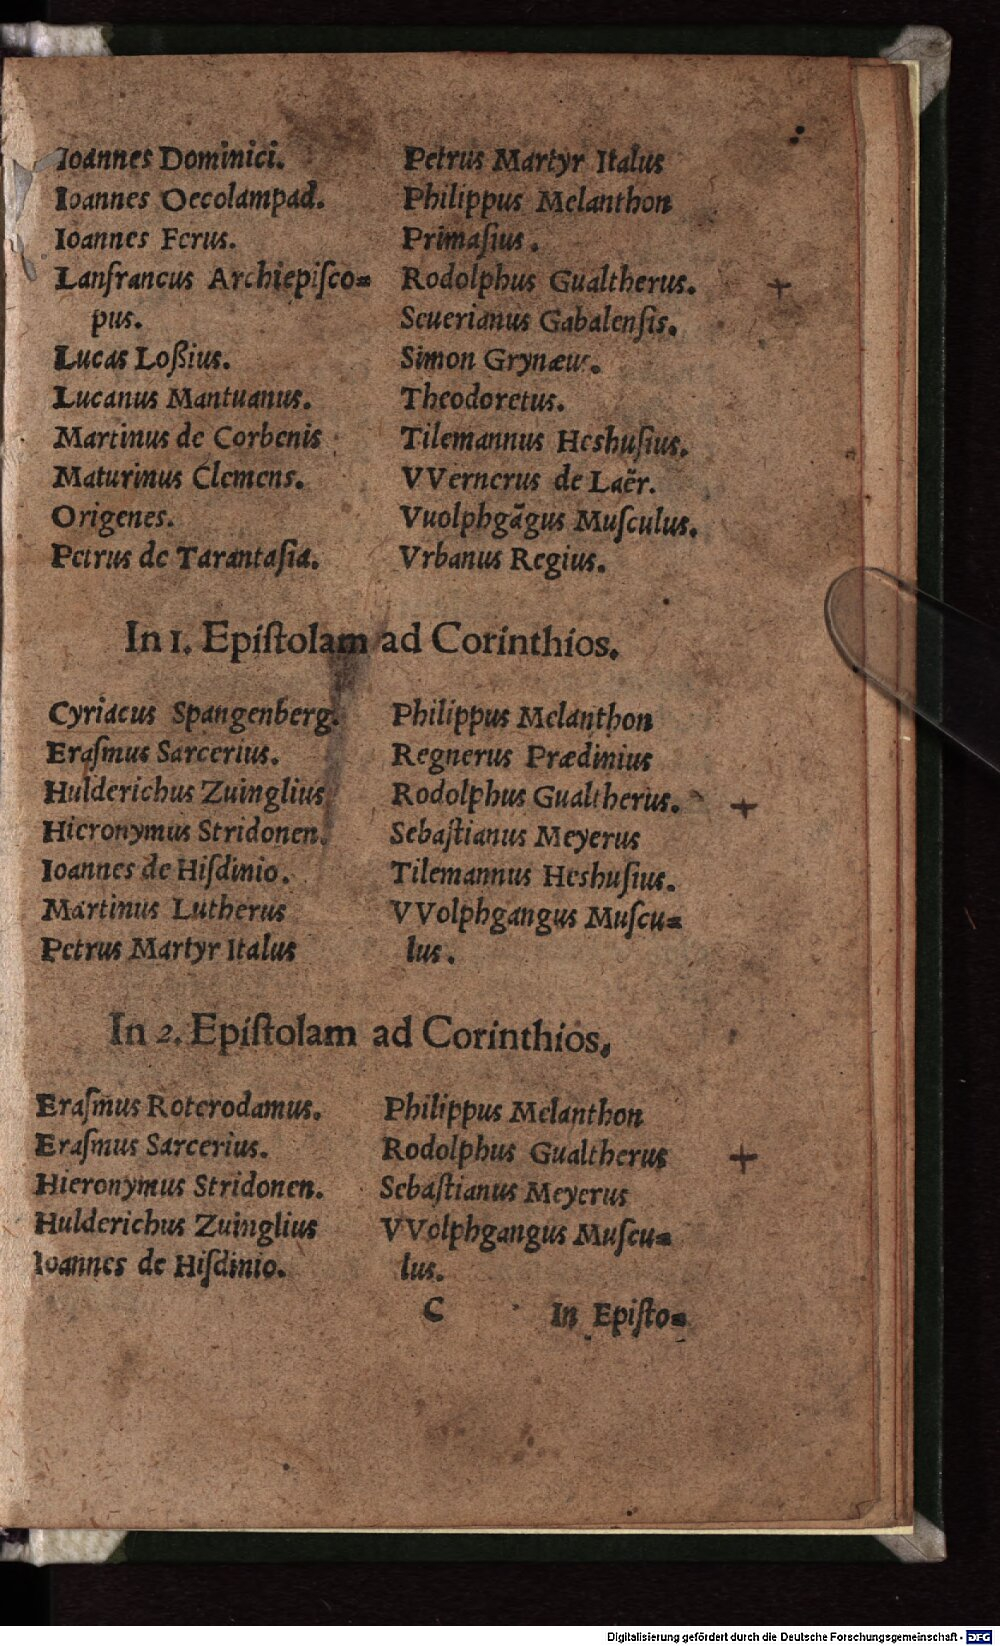 Ioannes Dominici.
Ioannes Oecolampad.
Ioannes Ferus.
Lanfrancus Archiepiſco=
pus.
Lucas Loßius.
Lucanus Mantuanus.
Martinus de Corbenis
Maturinus Clemens.
Origenes.
Petrus de Tarantaſia.
Petrus Martyr Italus
Philippus Melanthon
Primaſius.
Rodolphus Gualtherus. +
Seuerianus Gabalenſis.
Simon Grynæus.
Theodoretus.
Tilemannus Heshuſius.
VVernerus de Laër.
Vuolphgãgus Muſculus.
Vrbanus Regius.
In 1. Epiſtolam ad Corinthios.
Cyriacus Spangenberg.
Eraſmus Sarcerius.
Hulderichus Zuinglius
Hieronymus Stridonen.
Ioannes de Hiſdinio.
Martinus Lutherus
Petrus Martyr Italus
Philippus Melanthon
Regnerus Prædinius
Rodolphus Gualtherus. +
Sebaſtianus Meyerus
Tilemannus Heshuſius.
VVolphgangus Muſcu=
lus.
In 2. Epiſtolam ad Corinthios.
Eraſmus Roterodamus.
Eraſmus Sarcerius.
Hieronymus Stridonen.
Hulderichus Zuinglius
Ioannes de Hiſdinio.
Philippus Melanthon
Rodolphus Gualtherus +
Sebaſtianus Meyerus
VVolphgangus Muſcu=
lus.
C In Epiſto=
Digitalisierung gefördert durch die Deutsche Forschungsgemeinschaft - DFG